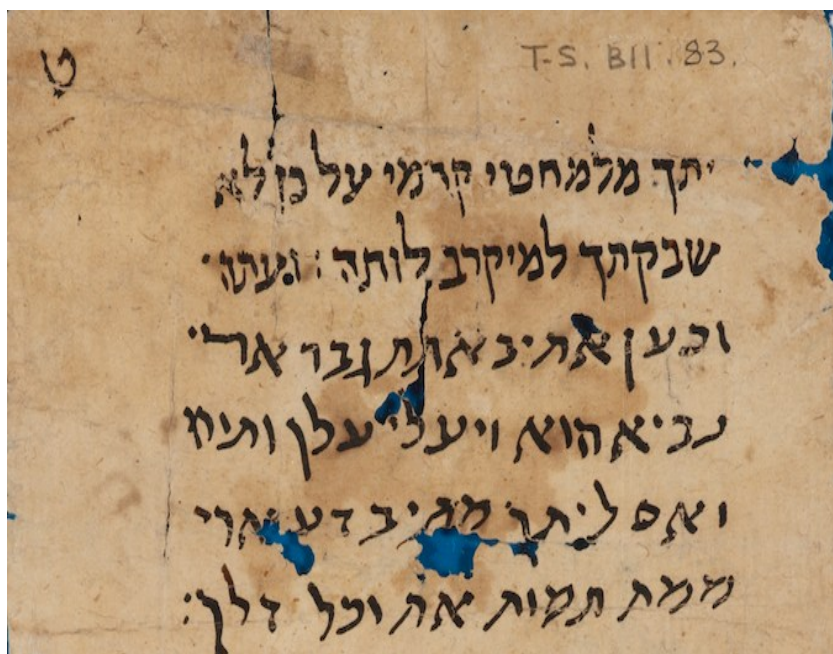 ט T-S. B11.83.
יתך מלמחטי קדמי על כן לא
שבקתך למיקרב לותה : ועתה
וכען אתיב אתת גבר ארי
נביא הוא ויצלי עלך ותיח
ואם ליתך מתיב דע ארי
ממת תמות את וכל דלך :